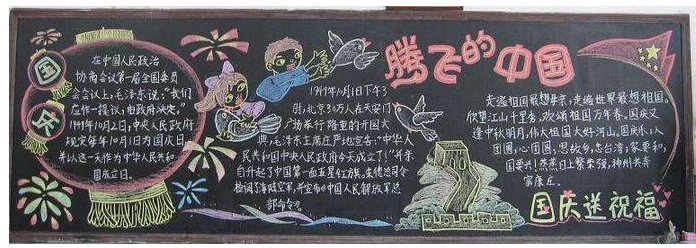 腾飞的中国
国庆
在中国人民政治
协商会议第一届全国委员
会会议上,毛泽东说:"我们
应作一提议,由政府决定。"
1949年10月2日,中央人民政府
规定每年10月1日为国庆日
并以这一天作为中华人民共和
国成立日。
1949年10月1日下午3
时,北京30万人在天安门
广场举行隆重的开国大
典,毛泽东主席庄严地宣告:"中华人
民共和国中央人民政府今天成立了!"并亲
自升起了第一面五星红旗。朱德总司令
检阅了海陆空军,并宣布《中国人民解放军总
部命令》。
走遍祖国最想母亲,走遍世界最想祖国。
欣望江山千里秀,欢颂祖国万年春。国庆又
逢中秋明月,伟大祖国大好河山。国庆小,人
团圆,心团圆,思故乡,念台湾;家要和,
国要兴!蒸蒸日上繁荣强,神州共奔
富康庄。
国庆送祝福